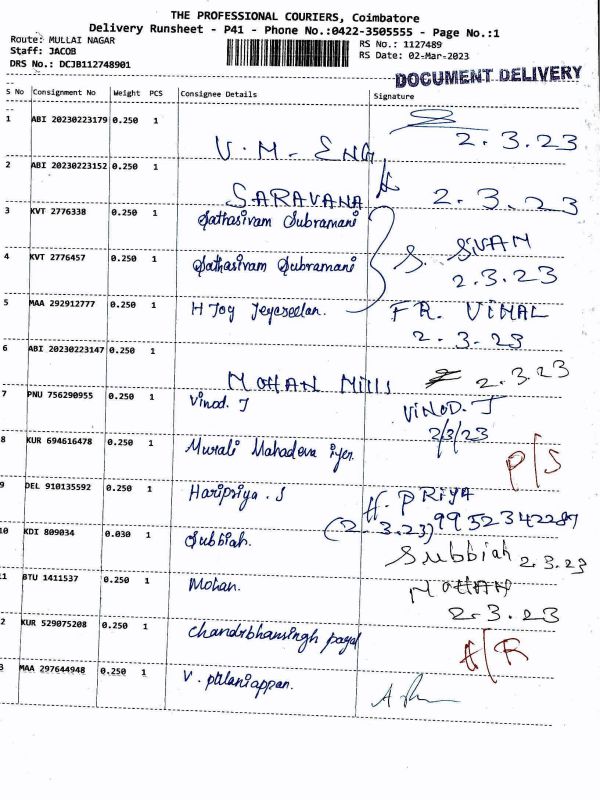 THE PROFESSIONAL COURIERS, Coimbatore
Delivery Runsheet - P41 - Phone No.:0422-3505555 - Page No.:1
Route: MULLAI NAGAR RS No.: 1127489
Staff: JACOB RS Date: 02-Mar-2023
DRS No.: DCJB112748901
DOCUMENT DELIVERY
S No Consignment No Weight PCS Consignee Details Signature
1 ABI 20230223179 0.250 1 V.M- ENG 2.3.23
2 ABI 20230223152 0.250 1 SARAVANA 2.3.23
3 KVT 2776338 0.250 1 Sathasivam Subramani
4 KVT 2776457 0.250 1 Sathasivam Subramani S. SIVAM
2.3.23
5 MAA 292912777 0.250 1 H Joy Jeyaseelan. FR. VIMAL
2.3.23
6 ABI 20230223147 0.250 1 MOHAN Mills 2.3.23
7 PNU 756290955 0.250 1 Vinod. J VINOD. J
2/3/23
8 KUR 694616478 0.250 1 Murali Mahadeva iyer. P/S
9 DEL 910135592 0.250 1 Haripriya . S H. PRIYA
(2.3.23) 9952342287
10 KDI 809034 0.030 1 Subbiah. Subbiah 2.3.23
1 BTU 1411537 0.250 1 Mohan. MOHAN
2.3.23
2 KUR 529075208 0.250 1 Chandrbhansingh payal
3 MAA 297644948 0.250 1 V. palaniappan.